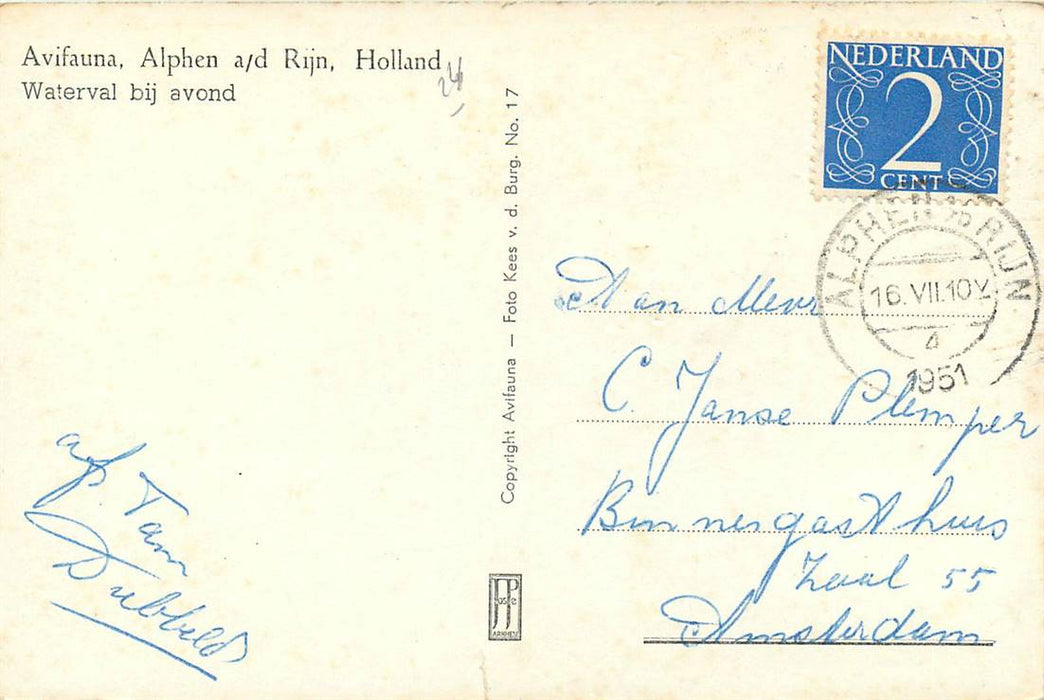 Avifauna, Alphen a/d Rijn, Holland
Waterval bij avond
24
Copyright Avifauna — Foto Kees v. d. Burg. No. 17
NEDERLAND
2
CENT
ALPHEN A/D RIJN
16.VII.10V
1951
Aan Mevr
C. Janse Plemper
Binnengasthuis
Zaal 55
Amsterdam
afs. Tam
Dubbeld
JosPé
ARNHEM